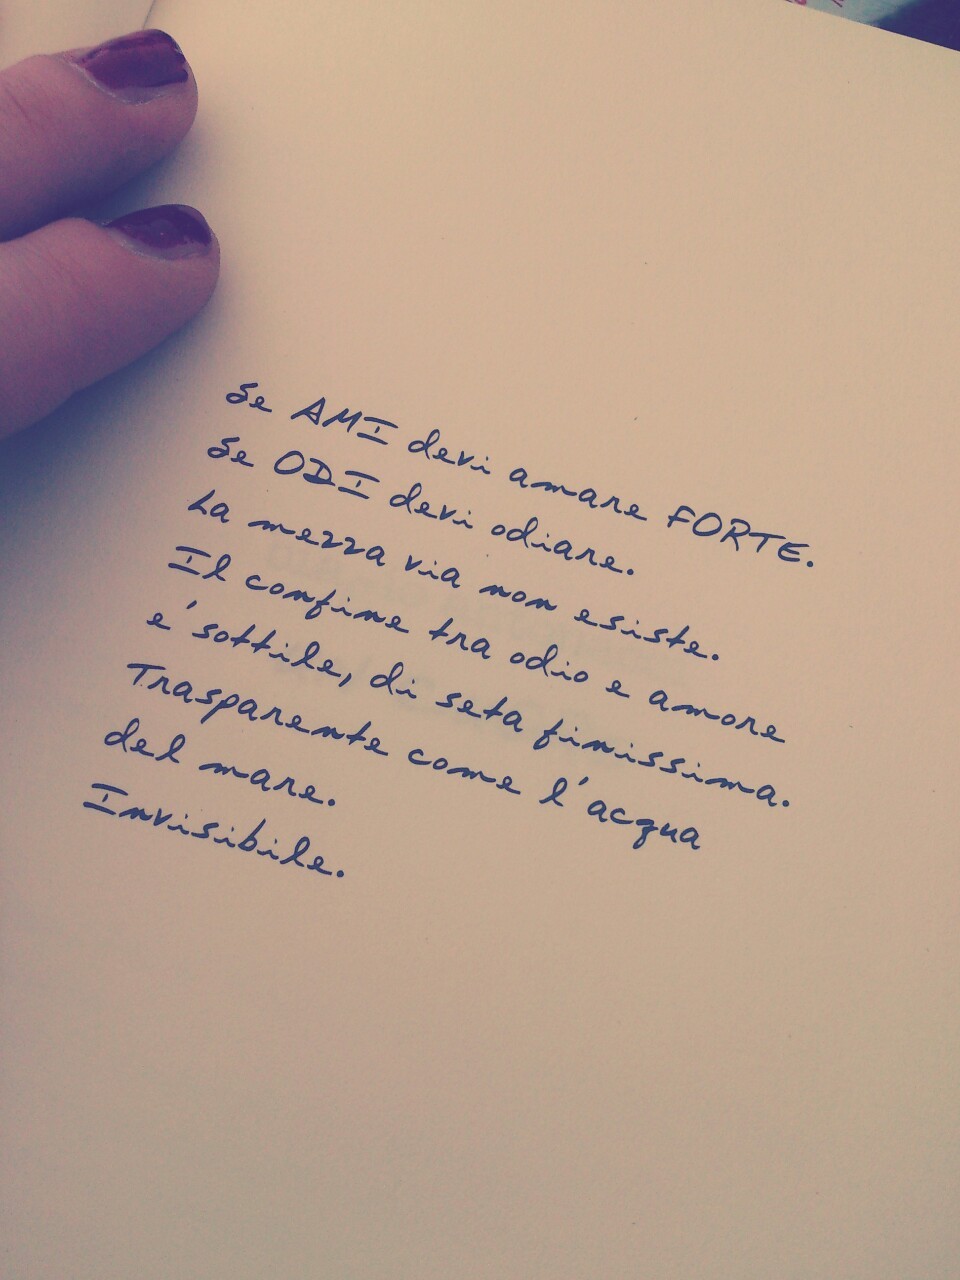 Se AMI devi amare FORTE.
Se ODI devi odiare.
La mezza via non esiste.
Il confine tra odio e amore
e' sottile, di seta finissima.
Trasparente come l'acqua
del mare.
Invisibile.